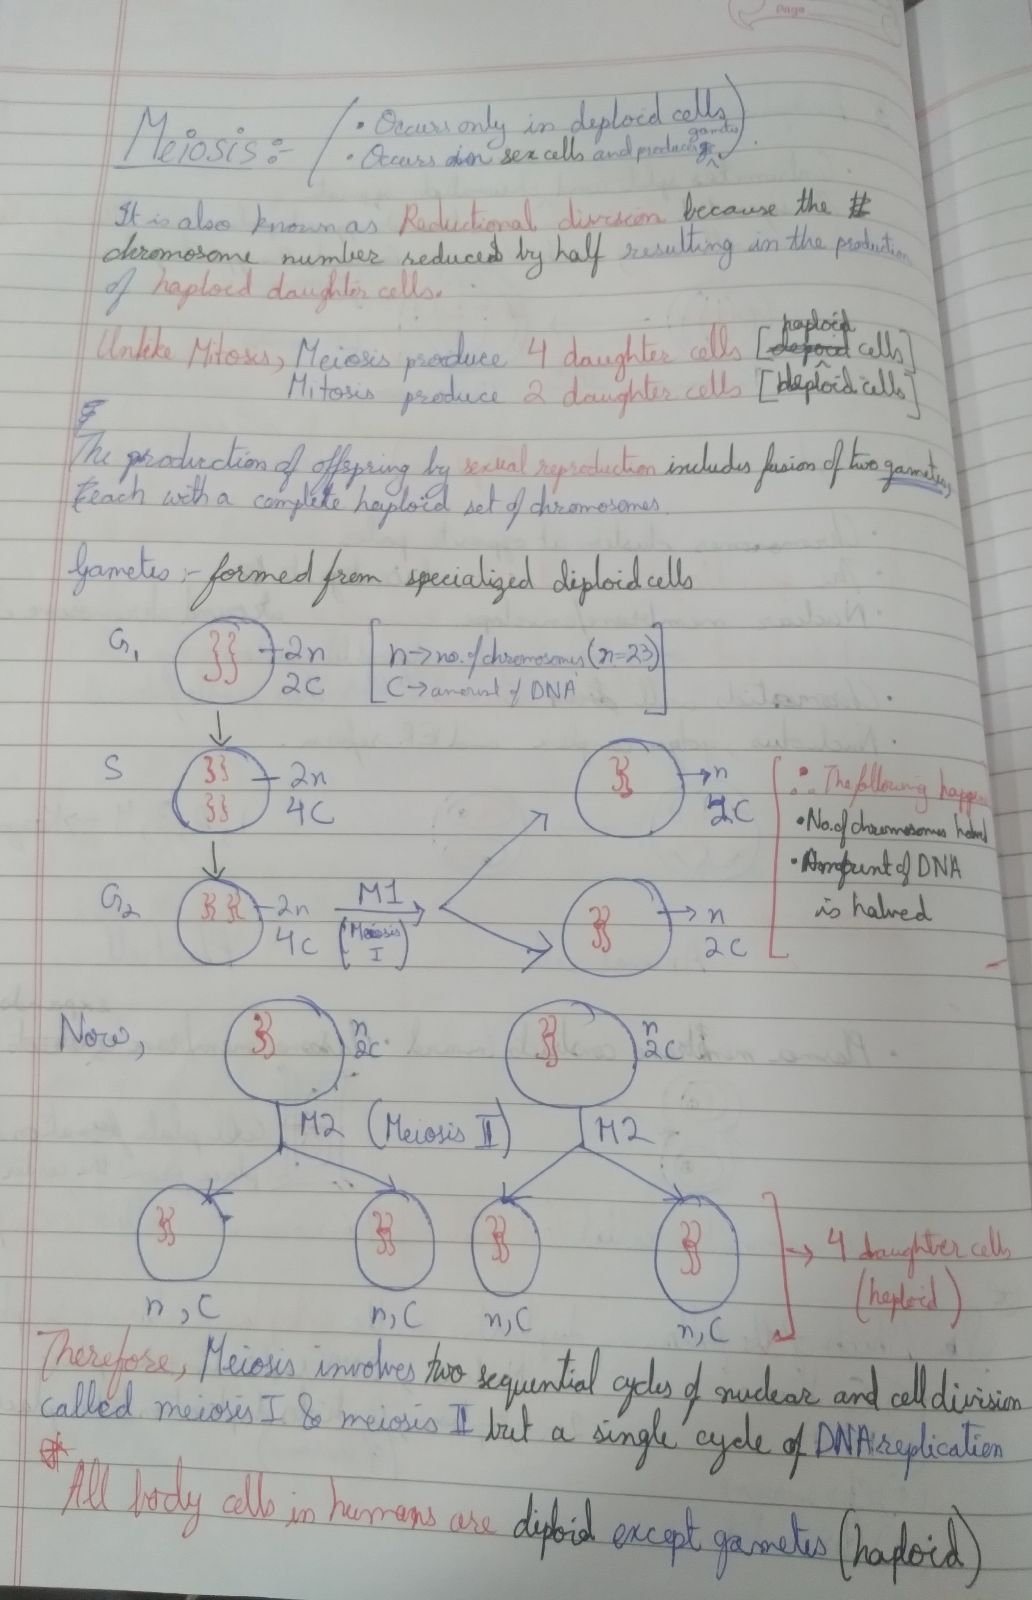 Page
Meiosis:- ( • Occurs only in deploid cells
• Occurs in sex cells and produces gametes )
It is also known as Reductional division because the
chromosome number reduced by half resulting in the production
of haploid daughter cells.
Unlike Mitosis, Meiosis produce 4 daughter cells [haploid cells]
Mitosis produce 2 daughter cells [deploid cells]
The production of offspring by sexual reproduction includes fusion of two gametes,
each with a complete haploid set of chromosomes.
Gametes :- formed from specialized diploid cells
G1 2n [n→no. of chromosomes (n=23)
2C C→amount of DNA]
S 2n
4C
→n
2C
∴ The following happen
• No. of chromosomes halved
• Amount of DNA
is halved
G2 2n
4C
M1
(Meiosis
I)
→ n
2C
Now, n
2C
n
2C
M2 (Meiosis II) M2
→ 4 daughter cells
(heploid)
n, C n, C n, C n, C
Therefore, Meiosis involves two sequential cycles of nuclear and cell division
called meiosis I & meiosis II but a single cycle of DNA replication
* All body cells in humans are diploid except gametes (haploid)